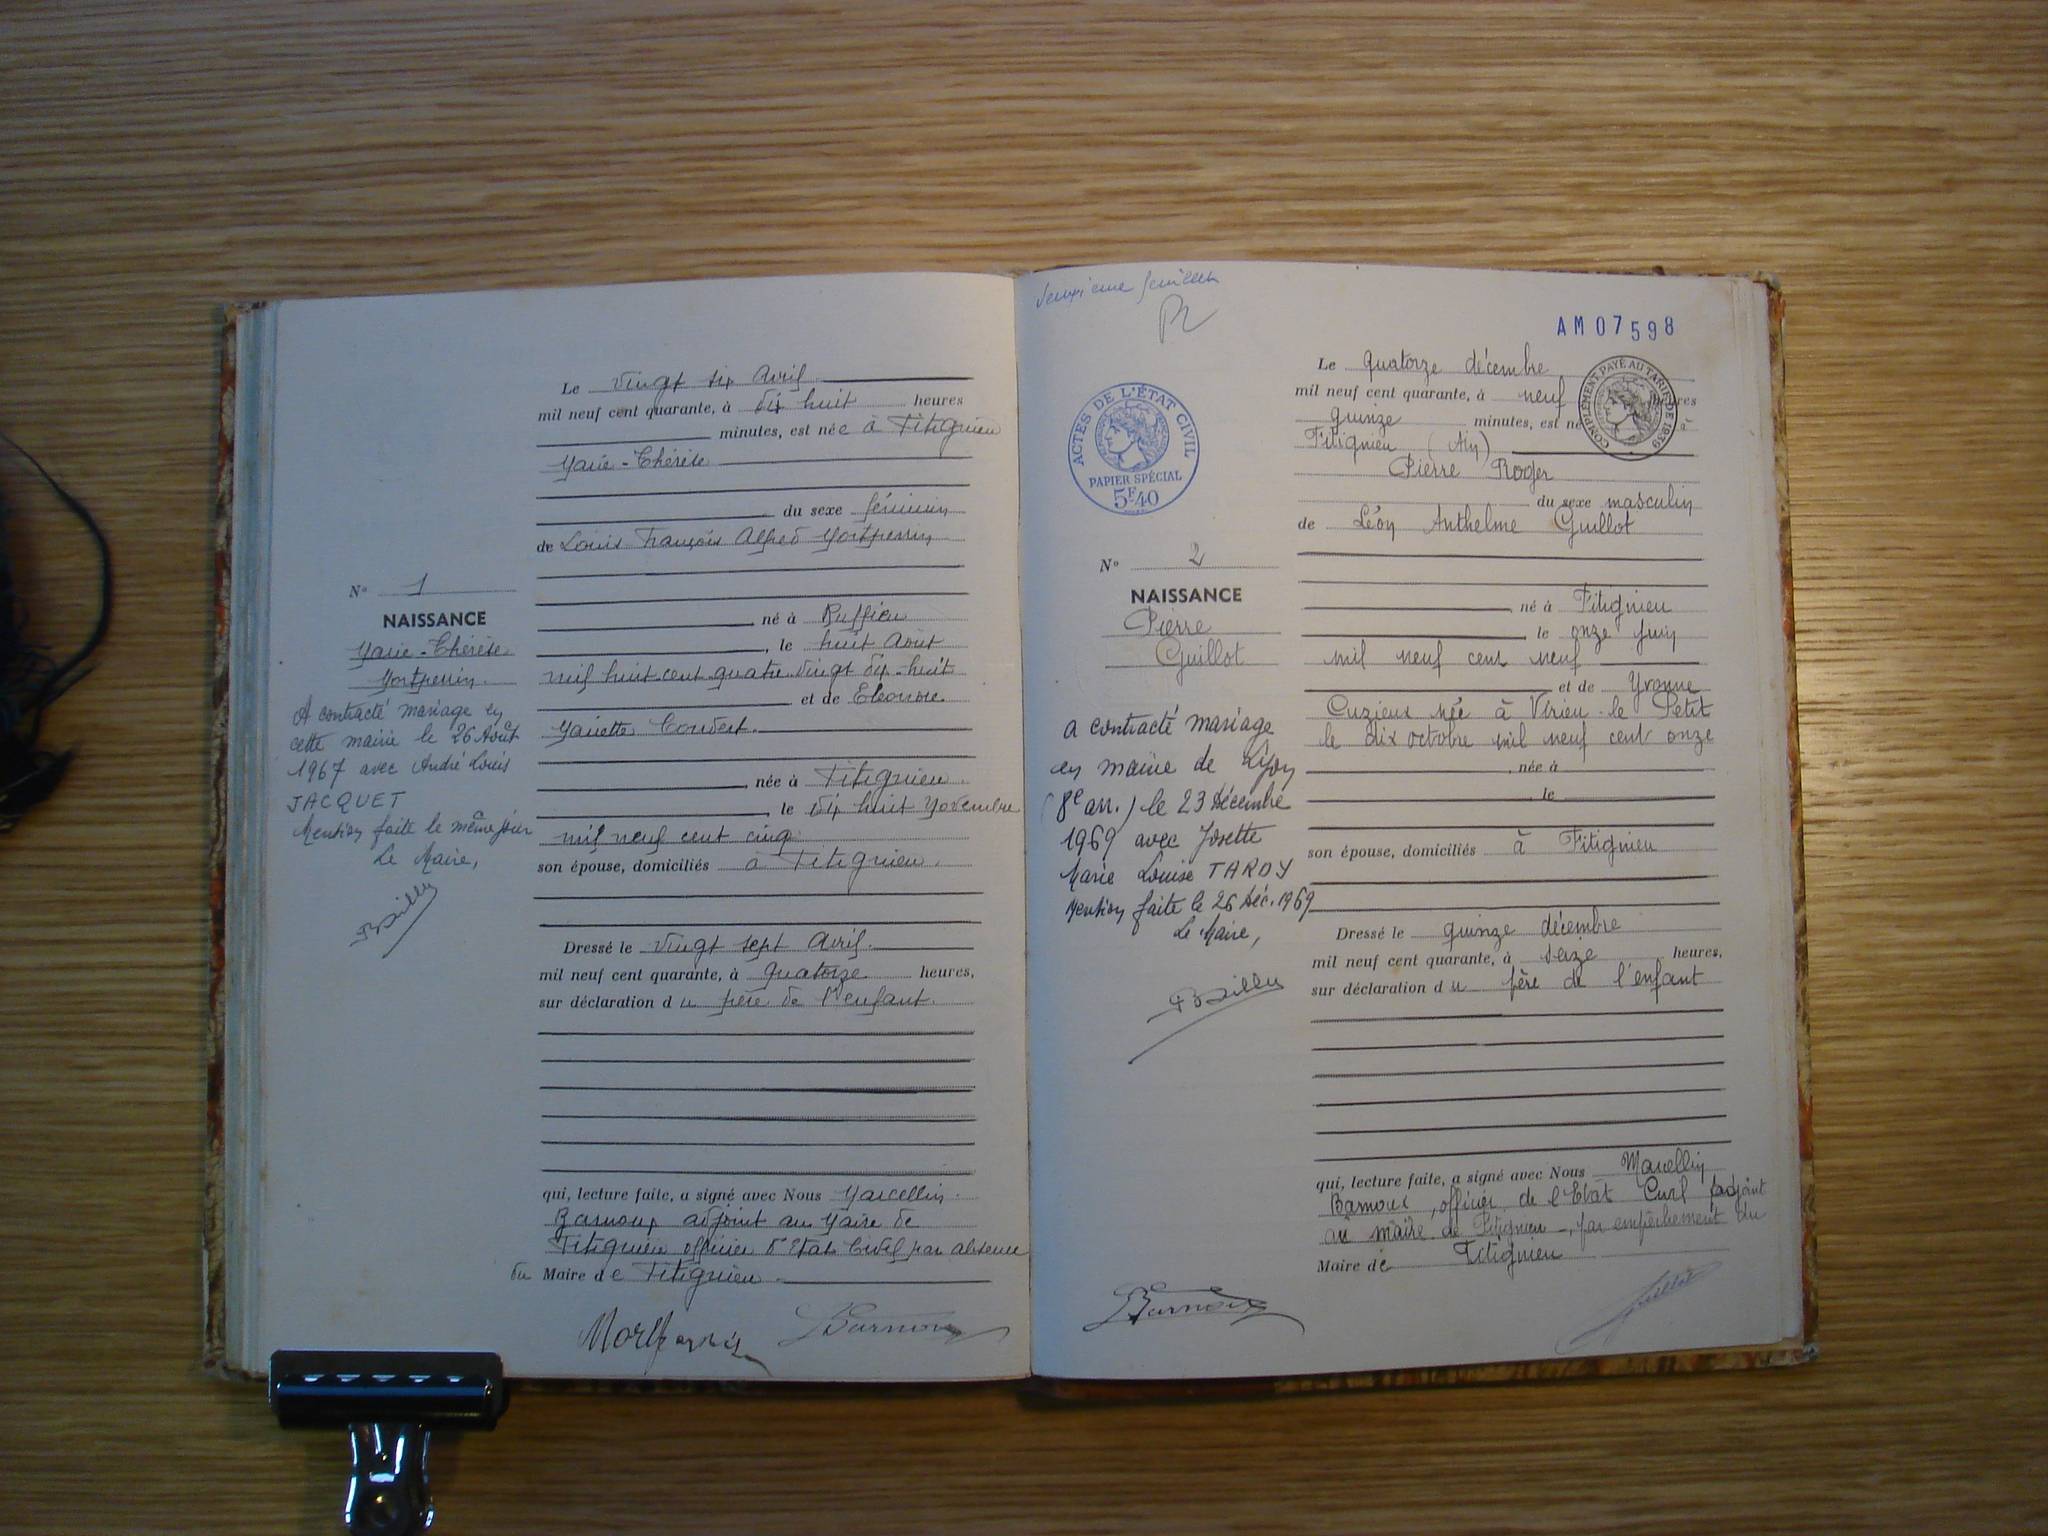 Le vingt six Avril
mil neuf cent quarante, à dix huit heures
minutes, est née à Fitignieu
Marie-Thérèse
du sexe féminin
de Louis François Alfred Mortperrin
né à Ruffieu
, le huit Août
mil huit cent quatre vingt dix-huit
et de Eléonore
Mariette Convert.
, née à Fitignieu
, le dix huit Novembre
mil neuf cent cinq
son épouse, domiciliés à Fitignieu.
N° 1
NAISSANCE
Marie-Thérèse
Mortperrin.
A contracté mariage en
cette mairie le 26 Août
1967 avec André Louis
JACQUET
Mention faite le même jour
Le Maire,
Dressé le vingt sept Avril.
mil neuf cent quarante, à quatorze heures,
sur déclaration du père de l'enfant.
qui, lecture faite, a signé avec Nous Marcellin
Barnoux adjoint au Maire de
Fitignieu officier d'Etat Civil par absence
du Maire de Fitignieu.
Barnoux
deuxième feuillet
AM07598
ACTES DE L'ÉTAT CIVIL
PAPIER SPÉCIAL
5F40
COMPLÉMENT PAYÉ AU TARIF DE 1939
Le quatorze décembre
mil neuf cent quarante, à neuf heures
quinze minutes, est né à
Fitignieu (Ain)
Pierre Roger
du sexe masculin
de Léon Anthelme Guillot
né à Fitignieu
le onze Juin
mil neuf cent neuf
et de Yvonne
Cuzieux née à Virieu-le-Petit
le dix octobre mil neuf cent onze
, née à
, le
son épouse, domiciliés à Fitignieu
N° 2
NAISSANCE
Pierre
Guillot
a contracté mariage
en mairie de Lyon
(8e arr.) le 23 Décembre
1969 avec Josette
Marie Louise TARDY
Mention faite le 26 Déc. 1969
Le Maire,
Dressé le quinze décembre
mil neuf cent quarante, à seize heures,
sur déclaration du père de l'enfant
qui, lecture faite, a signé avec Nous Marcellin
Barnoux, officier de l'Etat Civil adjoint
au maire de Fitignieu, par empêchement du
Maire de Fitignieu
Barnoux
Guillot